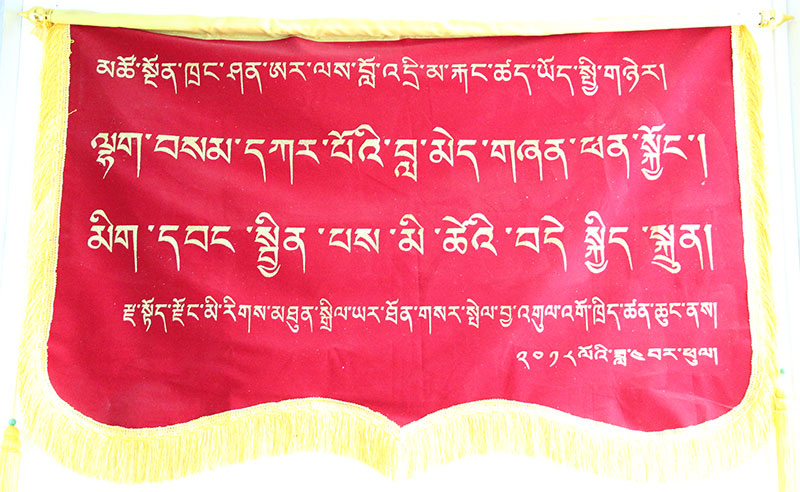 མཚོ་སྔོན་ཁྲང་ཤན་ཨར་ལས་བློ་འདྲི་མ་རྐང་ཚད་ཡོད་སྤྱི་གཉེར།
ལྷག་བསམ་དཀར་པོའི་བླ་མེད་གཞན་ཕན་སྐྱོང་།
མིག་དབང་སྦྱིན་པས་མི་ཚེའི་བདེ་སྐྱིད་སྐྲུན།
རྫ་སྟོད་རྫོང་མི་རིགས་མཐུན་སྒྲིལ་ཡར་ཐོན་གསར་སྤེལ་བྱ་འགུལ་འགོ་ཁྲིད་ཚན་ཆུང་ནས།
༢༠༡༨ལོའི་ཟླ་༤བར་ཕུལ།